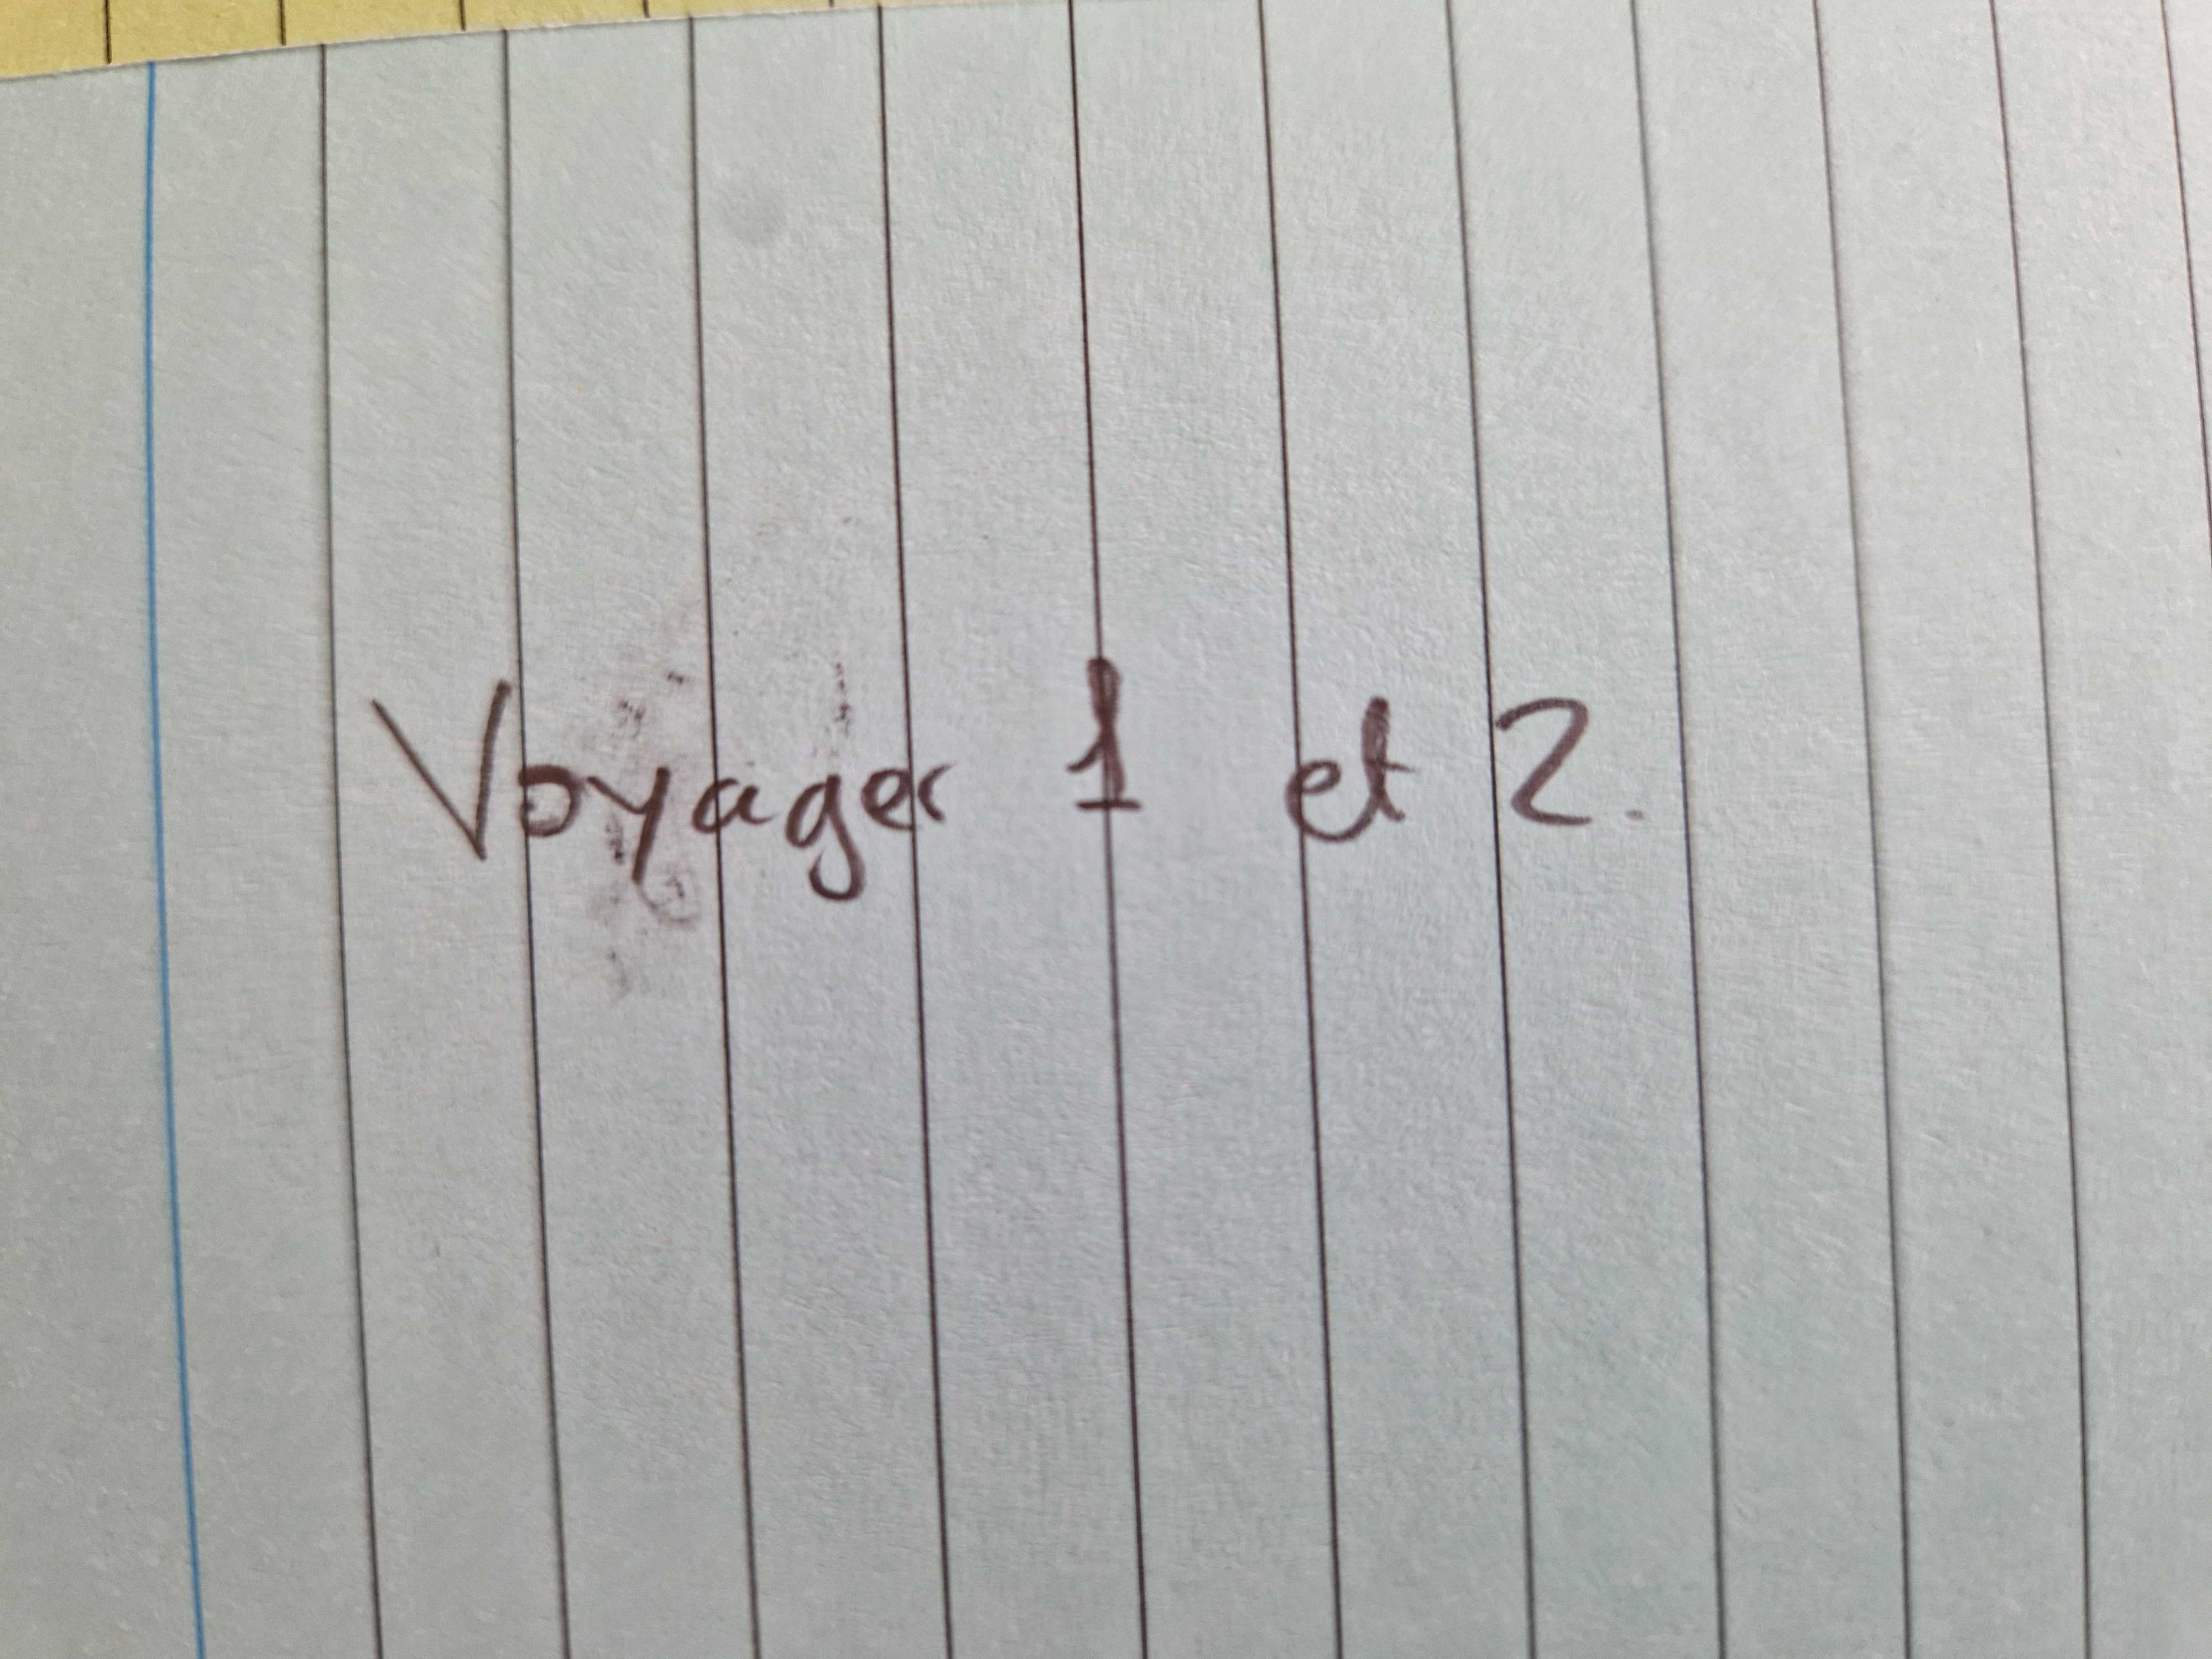 Voyager 1 et 2.